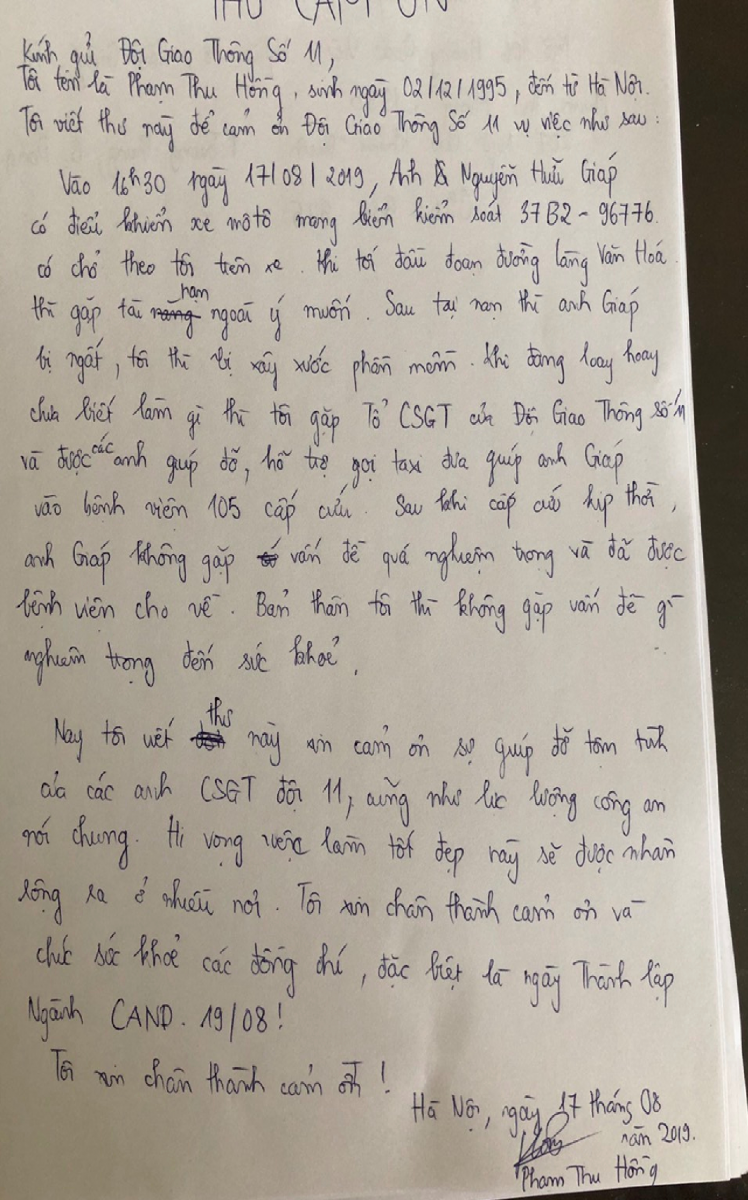 THƯ CẢM ƠN
Kính gửi Đội Giao Thông Số 11,
Tôi tên là Phạm Thu Hồng, sinh ngày 02/12/1995, đến từ Hà Nội.
Tôi viết thư này để cảm ơn Đội Giao Thông Số 11 vụ việc như sau:
Vào 16h30 ngày 17/08/2019, Anh Nguyễn Hữu Giáp
có điều khiển xe môtô mang biển kiểm soát 37B2-96776.
có chở theo tôi trên xe. Khi tới đầu đoạn đường làng Văn Hoá
thì gặp tai nạn ngoài ý muốn. Sau tại nạn thì anh Giáp
bị ngất, tôi thì bị xây xước phần mềm. Khi đang loay hoay
chưa biết làm gì thì tôi gặp Tổ CSGT của Đội Giao Thông số 11
và được các anh giúp đỡ, hỗ trợ gọi taxi đưa giúp anh Giáp
vào bệnh viện 105 cấp cứu. Sau khi cấp cứu kịp thời,
anh Giáp không gặp vấn đề quá nghiêm trọng và đã được
bệnh viện cho về. Bản thân tôi thì không gặp vấn đề gì
nghiêm trọng đến sức khoẻ.
Nay tôi viết thư này xin cảm ơn sự giúp đỡ tận tình
của các anh CSGT đội 11, cũng như lực lượng công an
nói chung. Hi vọng việc làm tốt đẹp này sẽ được nhân
rộng ra ở nhiều nơi. Tôi xin chân thành cảm ơn và
chúc sức khoẻ các đồng chí, đặc biệt là ngày Thành lập
Ngành CAND. 19/08!
Tôi xin chân thành cảm ơn!
Hà Nội, ngày 17 tháng 08
năm 2019.
Phạm Thu Hồng